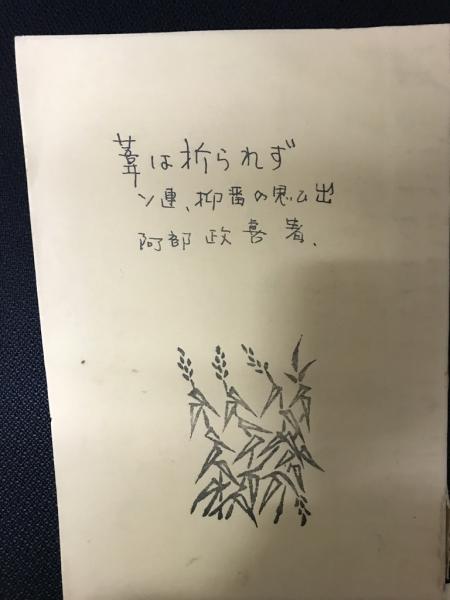 葦は折られず
ソ連、抑留の思い出
阿部政喜著、